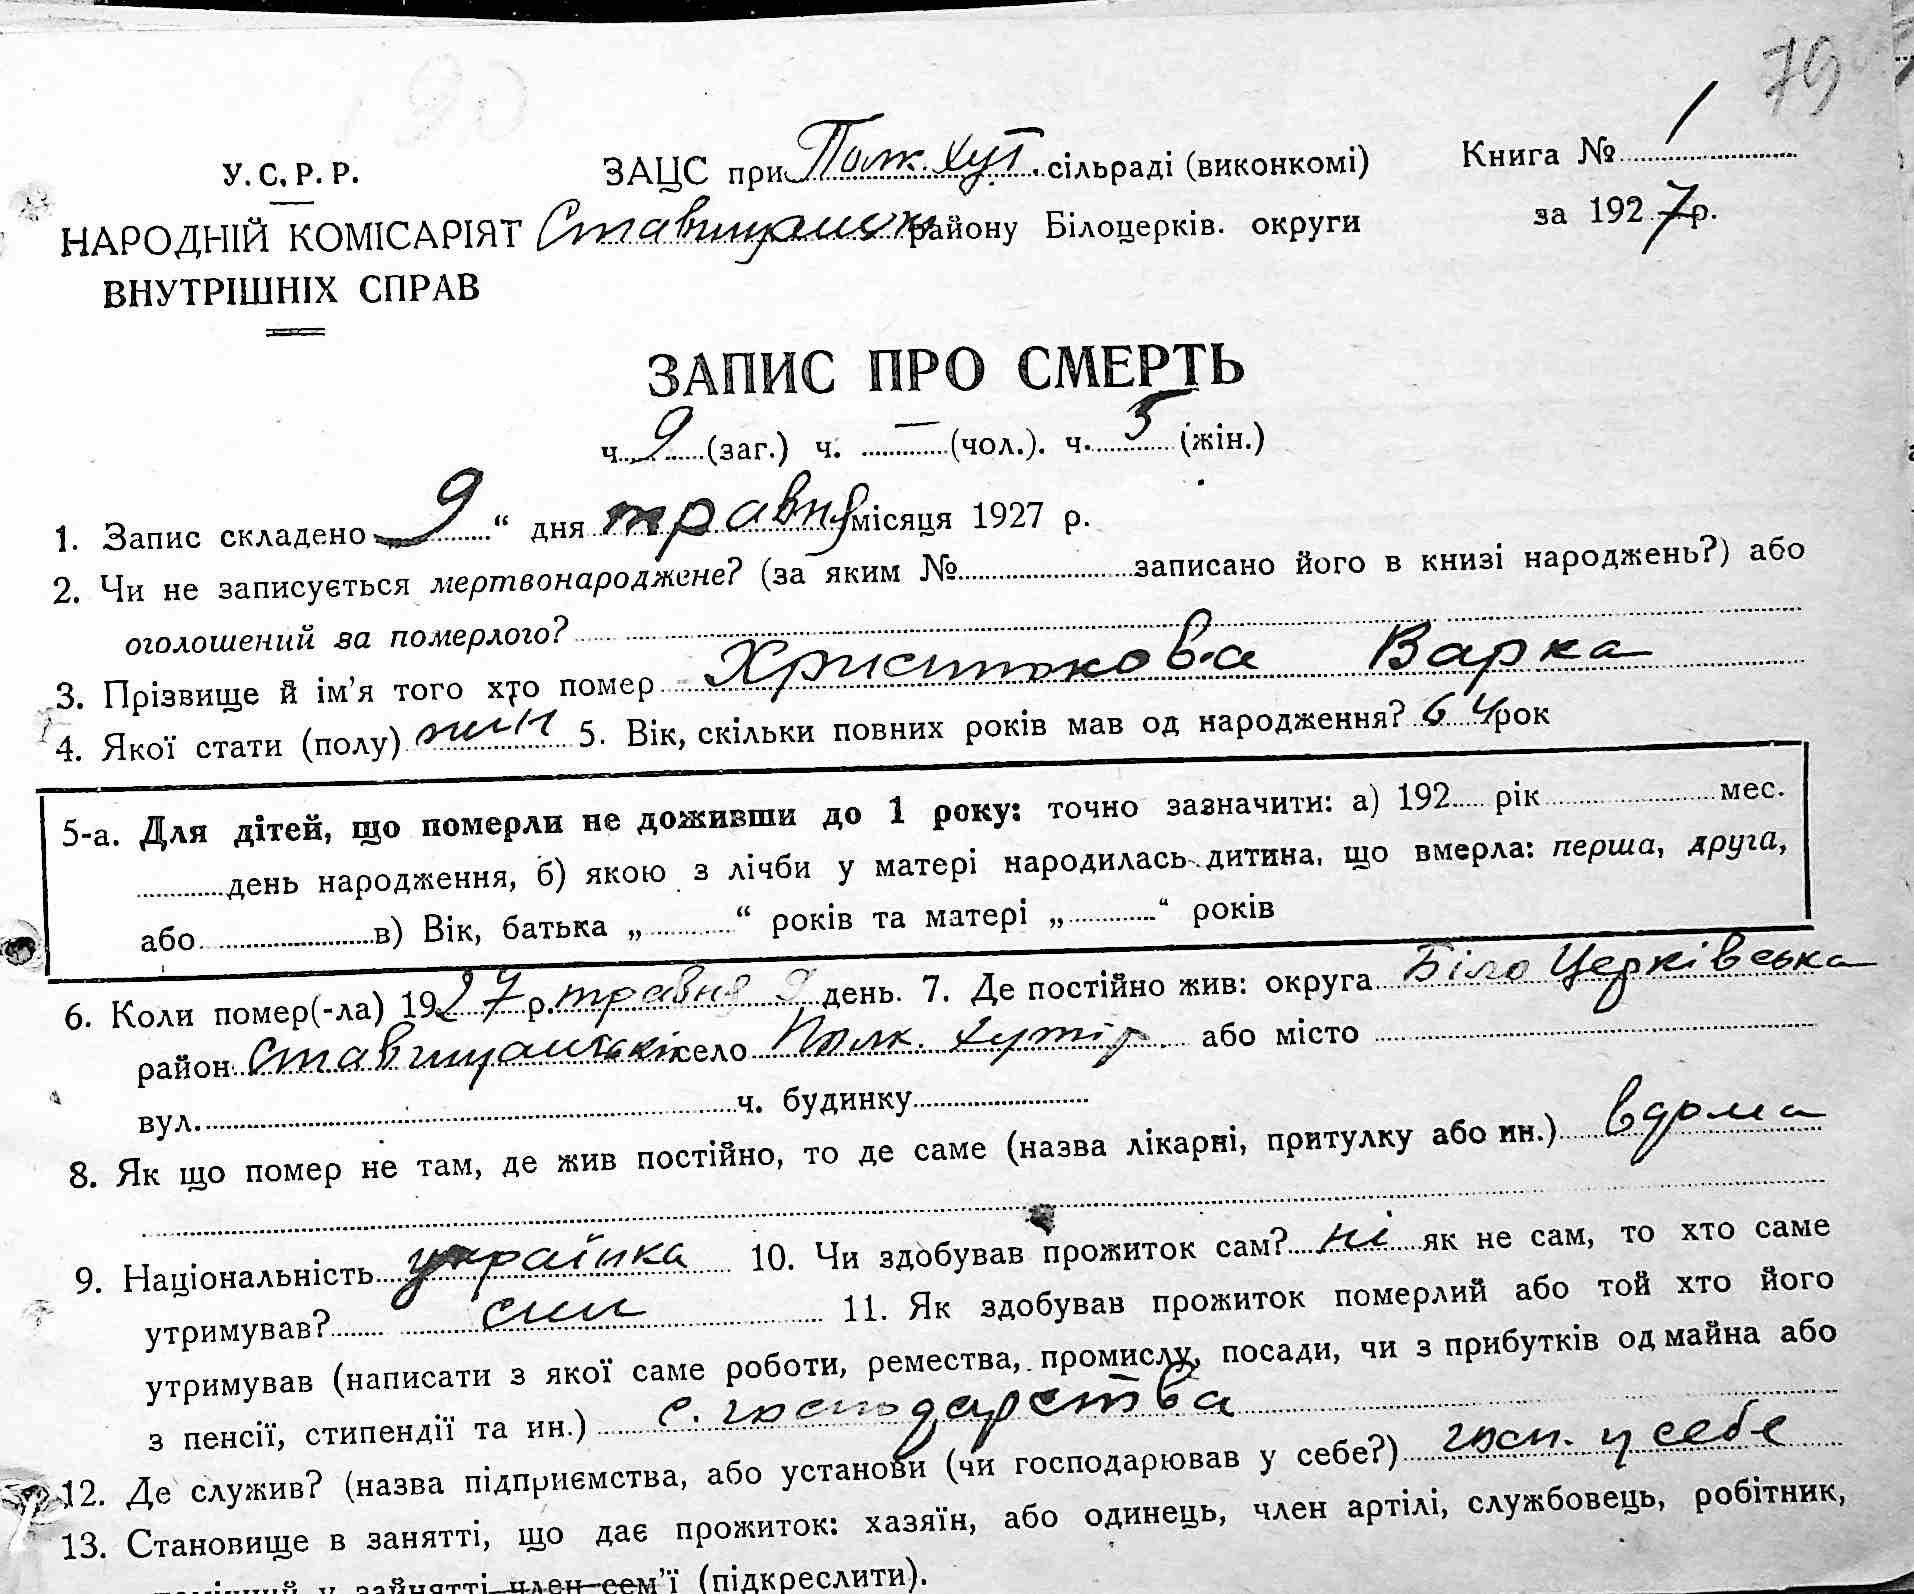 79
У.С.Р.Р. ЗАЦС при Полк. Хут. сільраді (виконкомі) Книга № 1
НАРОДНІЙ КОМІСАРІЯТ Ставищанськ району Білоцерків. округи за 1927 р.
ВНУТРІШНІХ СПРАВ
ЗАПИС ПРО СМЕРТЬ
ч. 9 (заг.) ч. — (чол.). ч. 5 (жін.)
1. Запис складено 9 “ дня травня місяця 1927 р.
2. Чи не записується мертвонароджене? (за яким № записано його в книзі народжень?) або
оголошений за померлого?
3. Прізвище й ім’я того хто помер Христюкова Варка
4. Якої стати (полу) жін 5. Вік, скільки повних років мав од народження? 64 рок
5-а. Для дітей, що померли не доживши до 1 року: точно зазначити: а) 192 рік мес.
день народження, б) якою з лічби у матері народилась дитина, що вмерла: перша, друга,
або в) Вік, батька „ “ років та матері „ “ років
6. Коли помер(-ла) 1927 р. травня 9 день. 7. Де постійно жив: округа Біло Церківська
район Ставищанський село Полк. Хутір або місто
вул. ч. будинку
8. Як що помер не там, де жив постійно, то де саме (назва лікарні, притулку або ин.) вдома
9. Національність українка 10. Чи здобував прожиток сам? ні як не сам, то хто саме
утримував? син 11. Як здобував прожиток померлий або той хто його
утримував (написати з якої саме роботи, ремества, промислу, посади, чи з прибутків од майна або
з пенсії, стипендії та ин.) с. господарства
12. Де служив? (назва підприємства, або установи (чи господарював у себе?) госп. у себе
13. Становище в занятті, що дає прожиток: хазяїн, або одинець, член артілі, службовець, робітник,
у зайнятті член сем’ї (підкреслити).